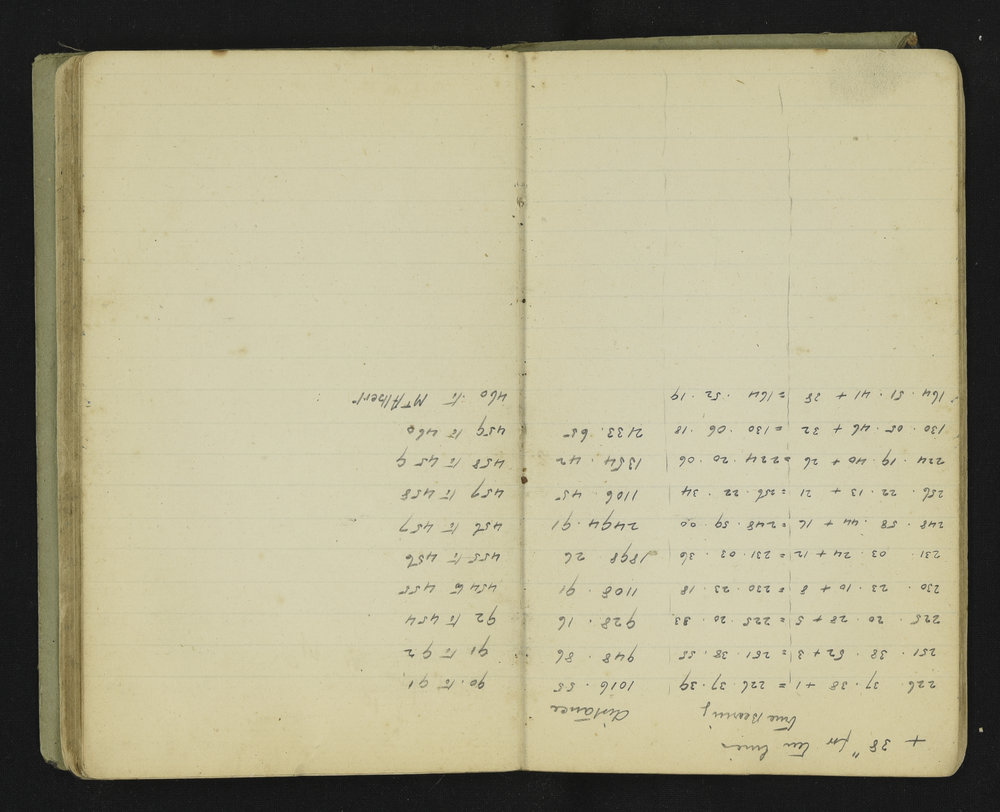 + 38" for ten lines
True Bearing distance
226. 37. 38 + 1 = 226. 37. 39 1016. 55 90. to 91
251. 38. 52 + 3 = 251. 38. 55 948. 86 91 to 92
225. 20. 28 + 5 = 225. 20. 33 928. 16 92 to 454
230. 23. 10 + 8 = 230. 23. 18 1108. 91 454 to 455
231. 03. 24 + 12 = 231. 03. 36 1898. 26 455 to 456
248. 58. 44 + 16 = 248. 59. 00 2494. 91 456 to 457
256. 22. 13 + 21 = 256. 22. 34 1106. 45 457 to 458
224. 19. 40 + 26 = 224 20. 06 1354. 42 458 to 459
130. 05. 46 + 32 = 130. 06. 18 2133. 65 459 to 460
164. 51. 41 + 38 = 164. 52. 19 460. to Mt Albert